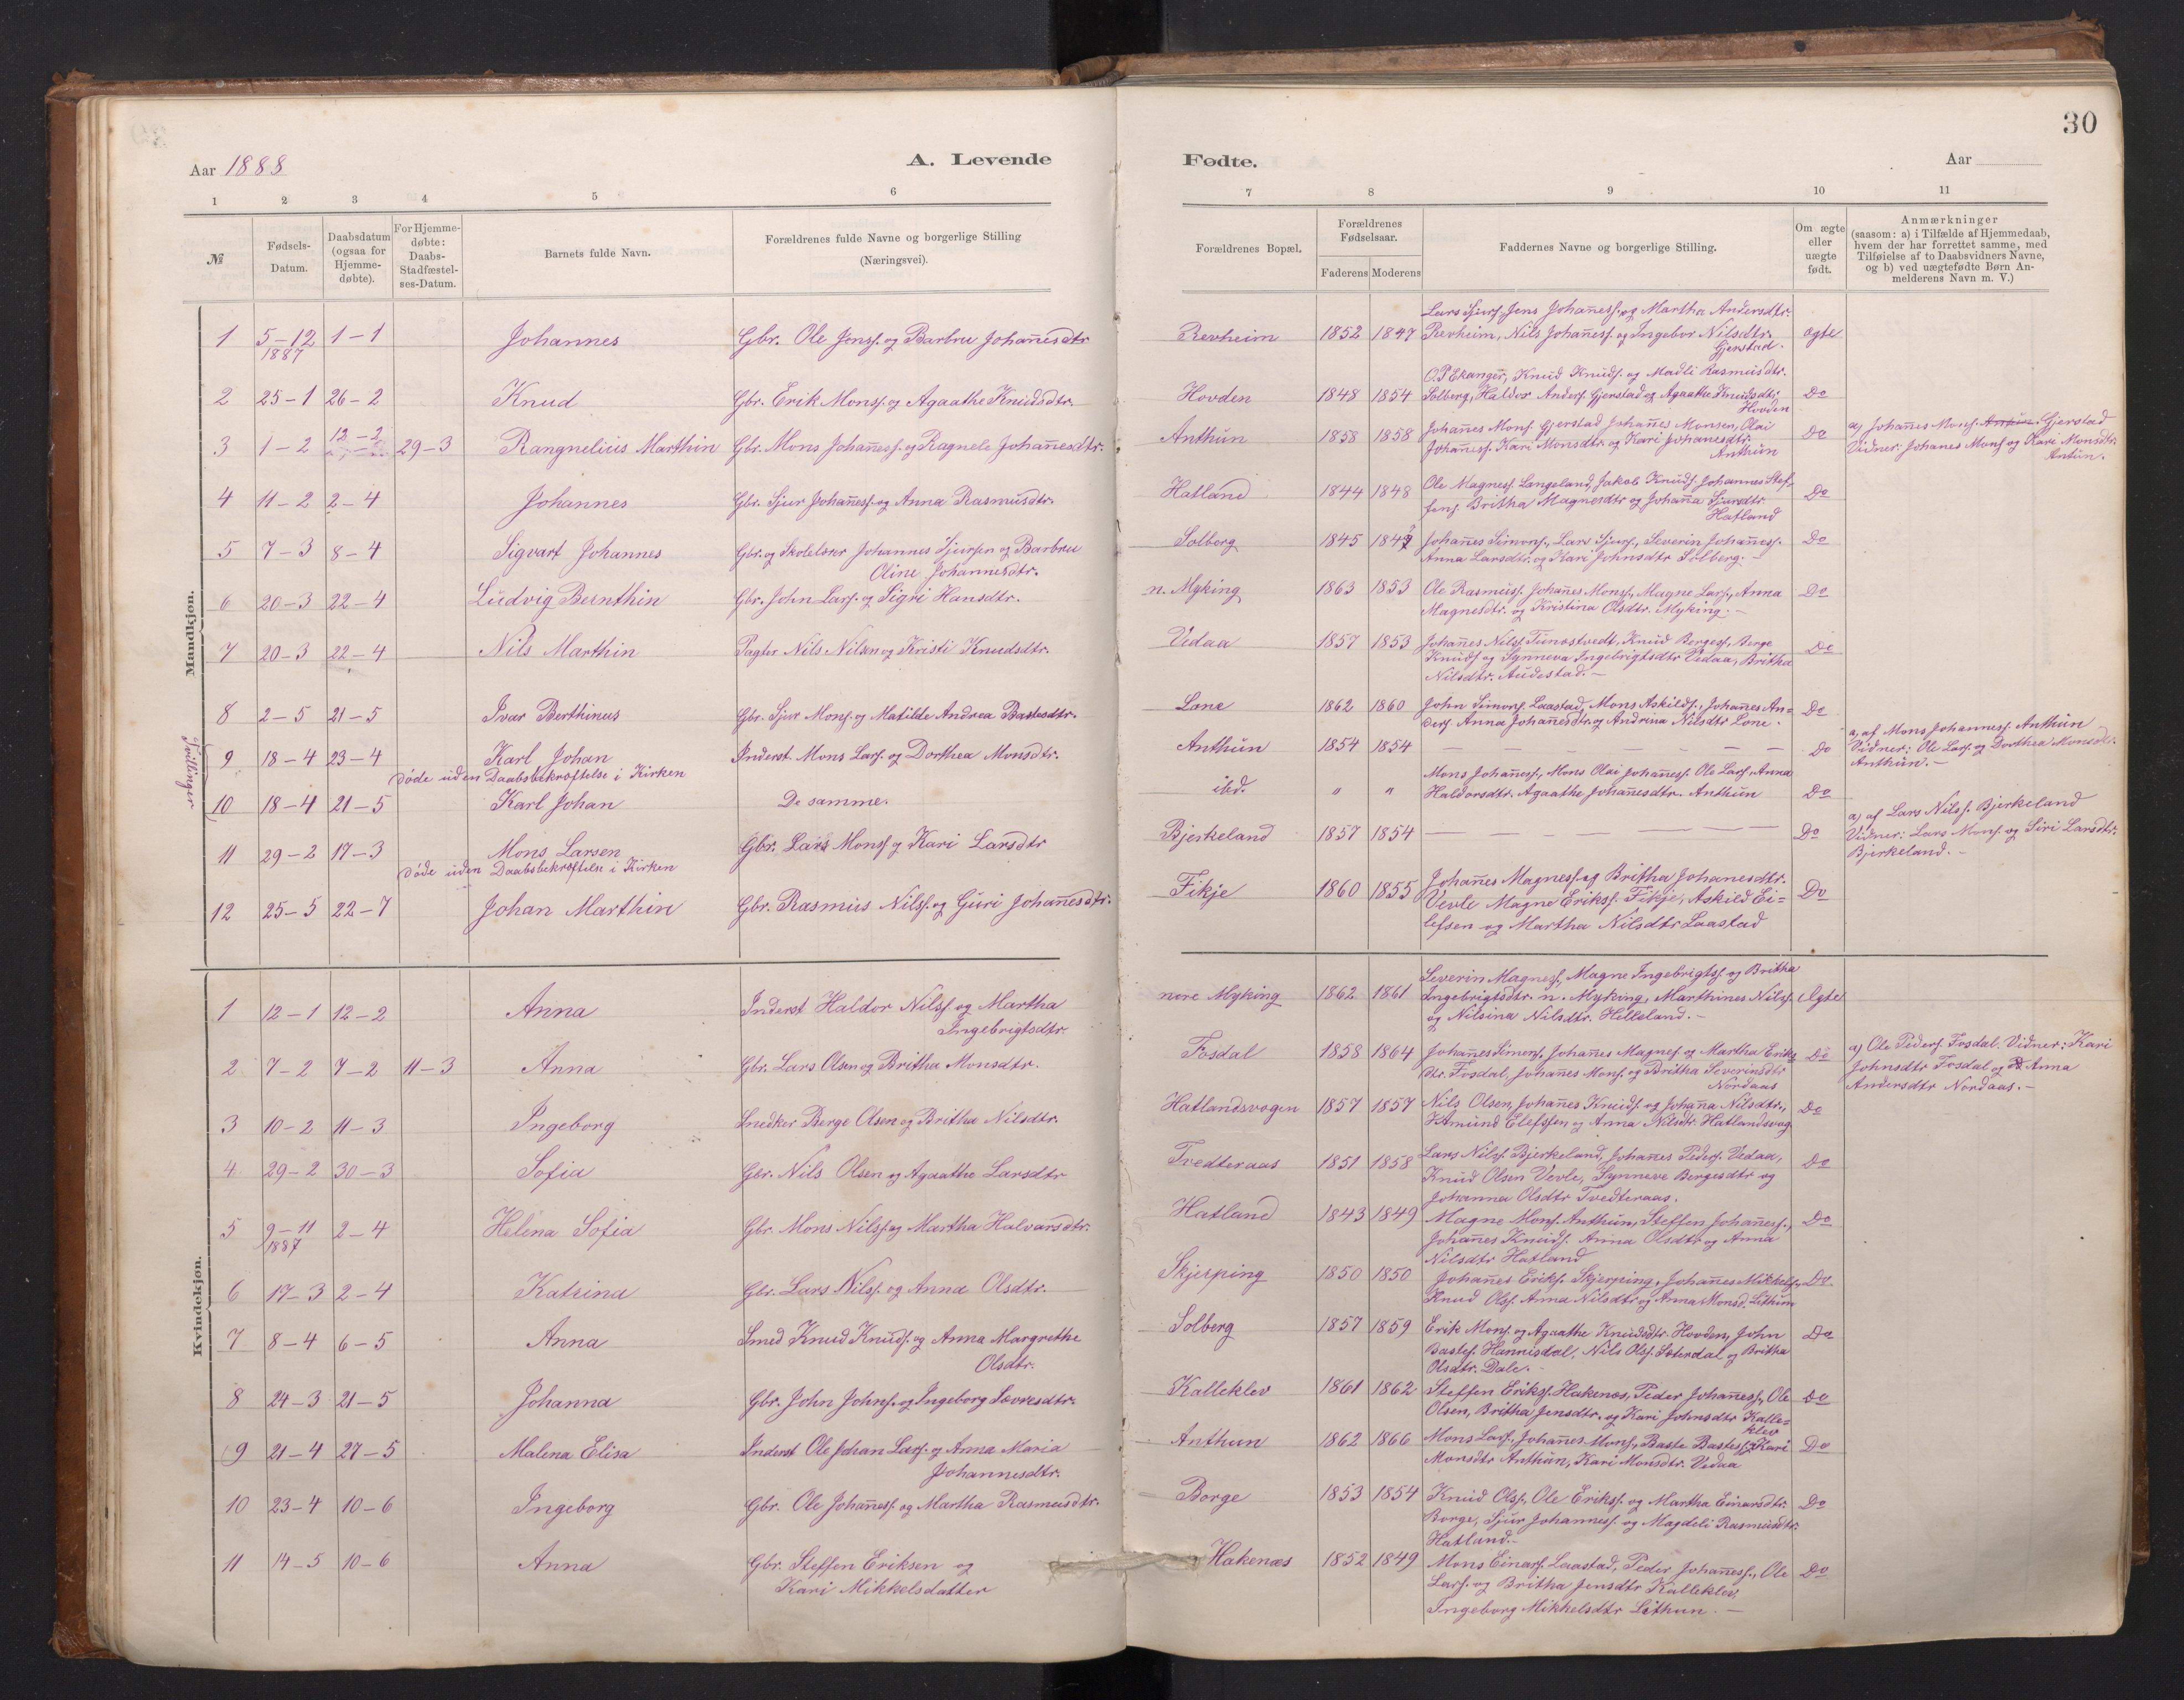 30
Aar 1888
A. Levende
Fødte.
Aar
1 2 3 4 5 6 7 8 9 10 11
№
Fødsels-Datum.
Daabsdatum (ogsaa for Hjemme-døbte).
For Hjemme-døbte: Daabs-Stadfæstel-ses-Datum.
Barnets fulde Navn.
Forældrenes fulde Navne og borgerlige Stilling (Næringsvei).
Forældrenes Bopæl.
Forældrenes Fødselsaar.
Faderens Moderens
Faddernes Navne og borgerlige Stilling.
Om ægte eller uægte født.
Anmærkninger
(saasom: a) i Tilfælde af Hjemmedaab,
hvem der har forrettet samme, med
Tilføielse af to Daabsvidners Navne,
og b) ved uægtefødte Børn An-
melderens Navn m. V.)
Mandkjøn.
1 5-12 1887 1-1 Johannes Gbr. Ole Jenss. og Barbru Johañesdtr Revheim 1852 1847
Lars Sjurs. Jens Johañess. og Martha Andersdtr.
Revheim, Nils Johañess. og Ingebor Nilsdtr.
Gjerstad.
ægte
2 25-1 26-2 Knud Gbr. Erik Monss. og Agaathe Knudsdtr. Hovden 1848 1854
O.P. Ekanger, Knud Knuds. og Madli Rasmusdtr.
Solberg, Haldor Anders. Gjerstad og Agaathe Knudsdtr.
Hovden
Do
3 1-2 12-2 29-3 Rangnelius Marthin Gbr. Mons Johañess. og Ragnele Johañesdtr. Anthun 1858 1858
Johañes Mons. Gjerstad Johañes Monsen, Olai
Johañess. Kari Monsdtr. og Kari Johanesdtr.
Anthun
Do
a) Johañes Mons. Gjerstad
Vidner: Johanes Mons. og Kari Monsdtr.
Antun.
4 11-2 2-4 Johannes Gbr. Sjur Johañess. og Anna Rasmusdtr. Hatland 1844 1848
Ole Magness. Langeland, Jakob Knuds. Johannes Stef-
fens. Britha Magnesdtr og Johaña Sjursdtr
Hatland
Do
5 7-3 8-4 Sigvart Johannes Gbr. og Skolelærer Johannes Sjursen og Barbru
Oline Johannesdtr.
Solberg 1845
Johañes Simons., Lars Sjurs., Severin Johañess.
Anna Larsdtr. og Kari Johnsdtr Solberg.
Do
6 20-3 22-4 Ludvig Bernthin Gbr. John Lars. og Sigri Hansdtr. n. Myking 1863 1853
Ole Rasmuss. Johañes Mons., Magne Lars., Anna
Magnesdtr. og Kristina Olsdtr. Myking.
Do
7 20-3 22-4 Nils Marthin Pagter Nils Nilsen og Kristi Knudsdtr. Vedaa 1857 1853
Johañes Nilss. Tunestvedt, Knud Bergess., Berge
Knuds. og Synneva Ingebrigtsdtr Vedaa, Britha
Nilsdtr. Audestad.
Do
8 2-5 21-5 Ivar Berthinus Gbr. Sjur Mons. og Matilde Andrea Bastesdtr. Lone 1862 1860
John Simons. Laastad, Mons Askilds., Johañes An=
ders. Anna Johañesdtr. og Andrina Nilsdtr Lone.
Do
Tvillinger
9 18-4 23-4 Karl Johan Inderst. Mons Lars. og Dorthea Monsdtr. Anthun 1854 1854 Do
døde uden Daabsbekræftelse i Kirken
a) af Mons Johanness. Anthun
Vidner: Ole Lars. og Dorthea Monsdtr.
Anthun.
10 18-4 21-5 Karl Johan De samme. ibd. " "
Mons Johañess., Mons Olai Johañess. Ole Lars., Anna
Haldorsdtr. Agaathe Johañesdtr. Anthun
Do
11 29-2 17-3 Mons Larsen Gbr. Lars Monss. og Kari Larsdtr Bjerkeland 1857 1854 Do
døde uden Daabsbekræftelse i Kirken
a) af Lars Nilss. Bjerkeland
Vidner: Lars Mons. og Siri Larsdtr.
Bjerkeland.
12 25-5 22-7 Johan Marthin Gbr. Rasmus Nilss. og Guri Johañesdtr. Fikje 1860 1855
Johañes Magness. og Britha Johanesdtr.
Vevle Magne Erikss. Fikje, Askild Ei=
lefsen og Martha Nilsdtr Laastad
Do
Kvindekjøn.
1 12-1 12-2 Anna Inderst Haldor Nilss. og Martha
Ingebrigtsdtr.
nore Myking 1862 1861
Severin Magness., Magne Ingebrigtss. og Britha
Ingebrigtsdtr. n. Myking, Marthines Nilss.
og Nilsina Nilsdtr. Helleland.
Ægte
2 7-2 7-2 11-3 Anna Gbr. Lars Olsen og Britha Monsdtr. Fosdal 1858 1864
Johañes Simons., Johañes Magnes. og Martha Eriks
dtr. Fosdal, Johañes Mons. og Britha Severinsdtr
Nordaas
Do
a) Ole Peders. Fosdal. Vidner: Kari
Johnsdtr Fosdal og Anna
Andersdtr Nordaas.
3 10-2 11-3 Ingeborg Snedker Berge Olsen og Britha Nilsdtr. Hatlandsvogen 1857 1857
Nils Olsen, Johañes Knuds. og Johaña Nilsdtr.,
Amund Elefssen og Anna Nilsdtr. Hatlandsvog
Do
4 29-2 30-3 Sofia Gbr. Nils Olsen og Agaathe Larsdtr Tvedteraas 1851 1858
Lars Nilss. Bjerkeland, Johañes Peders. Vedaa,
Knud Olsen Vevle, Synneve Bergesdtr og
Johanna Olsdtr Tvedteraas.
Do
5 9-11 1887 2-4 Helena Sofia Gbr. Mons Nilss. og Martha Halvarsdtr. Hatland 1843 1849
Magne Mons. Anthun, Steffen Johañess.,
Johañes Knuds. Anna Olsdtr og Anna
Nilsdtr Hatland
Do
6 17-3 2-4 Katrina Gbr. Lars Nilss. og Anna Olsdtr. Skjerping 1850 1850
Johañes Eriks. Skjerping, Johañes Mikkels.,
Knud Ols. Anna Nilsdtr og Anna Monsd. Lithun
Do
7 8-4 6-5 Anna Smed Knud Knuds. og Anna Margrethe
Olsdtr.
Solberg 1857 1859
Erik Mons. og Agaathe Knudsdtr. Hovden, John
Bastes. Hannisdal, Nils Ols. Sæterdal og Britha
Olsdtr. Dale.
Do
8 24-3 21-5 Johanna Gbr. John Johns. og Ingeborg Sævresdtr. Kalleklev 1861 1862
Steffen Erikss. Hakenæs, Peder Johañess., Ole
Olsen, Britha Jensdtr. og Kari Johnsdtr Kalle=
klev
Do
9 21-4 27-5 Malena Elisa Inderst Ole Johan Lars. og Anna Maria
Johannesdtr.
Anthun 1862 1866
Mons Lars., Johañes Mons., Baste Bastes., Kari
Monsdtr Anthun, Kari Monsdtr. Vedaa
Do
10 23-4 10-6 Ingeborg Gbr. Ole Johañess. og Martha Rasmusdtr. Borge 1853 1854
Knud Ols., Ole Erikss. og Martha Einarsdtr.
Borge, Sjur Johanness. og Magdeli Rasmusdtr.
Hatland.
Do
11 14-5 10-6 Anna Gbr. Steffen Eriksen og
Kari Mikkelsdatter
Hakenæs 1852 1849
Mons Einars. Laastad, Peder Johañess., Ole
Lars. og Britha Jensdtr Kalleklev,
Ingeborg Mikkelsdtr Lithun.
Do